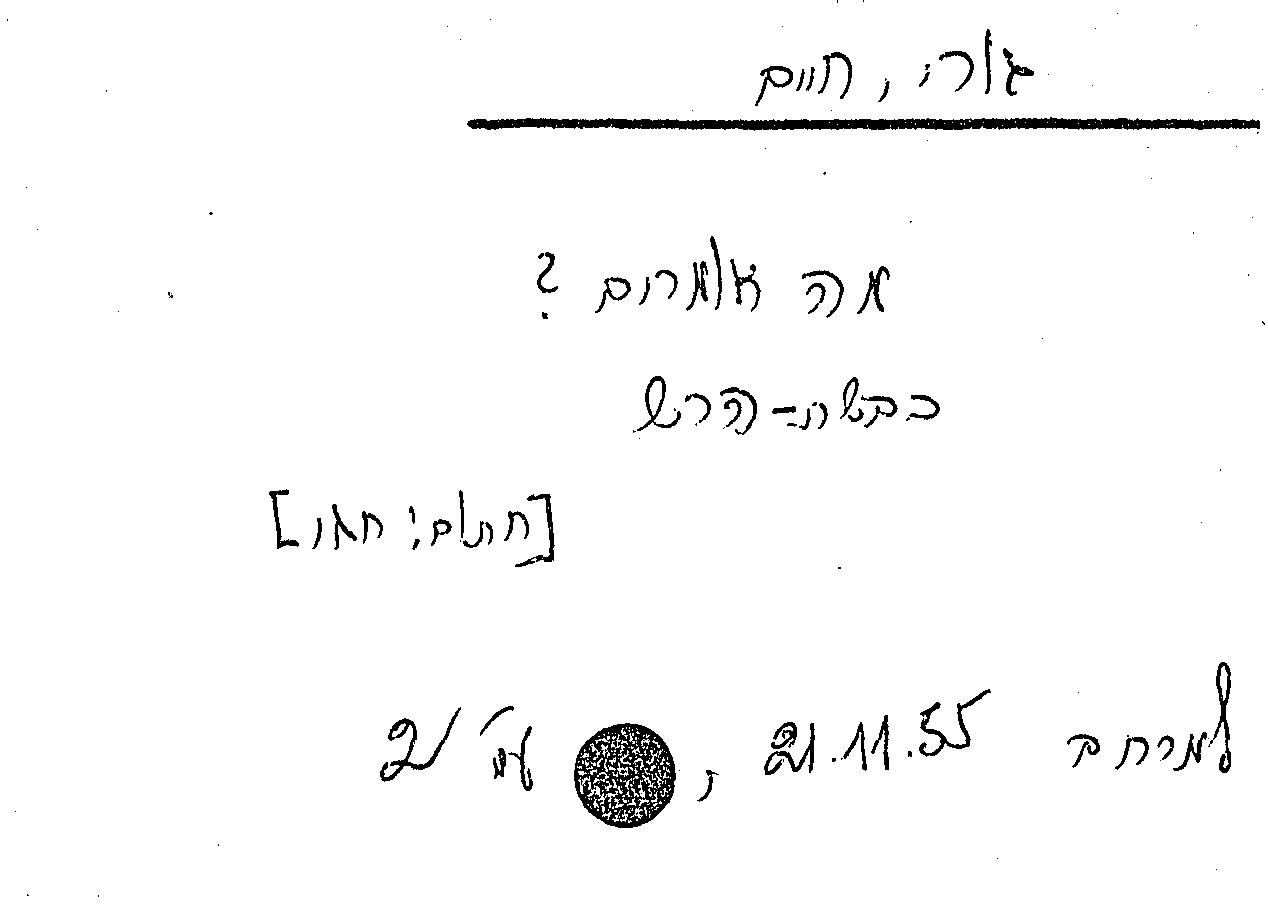 גורי, חיים
מה אומרים?
כבשת-הרש
[חתום: חגו]
למרחב 21.11.55, עמ' 2